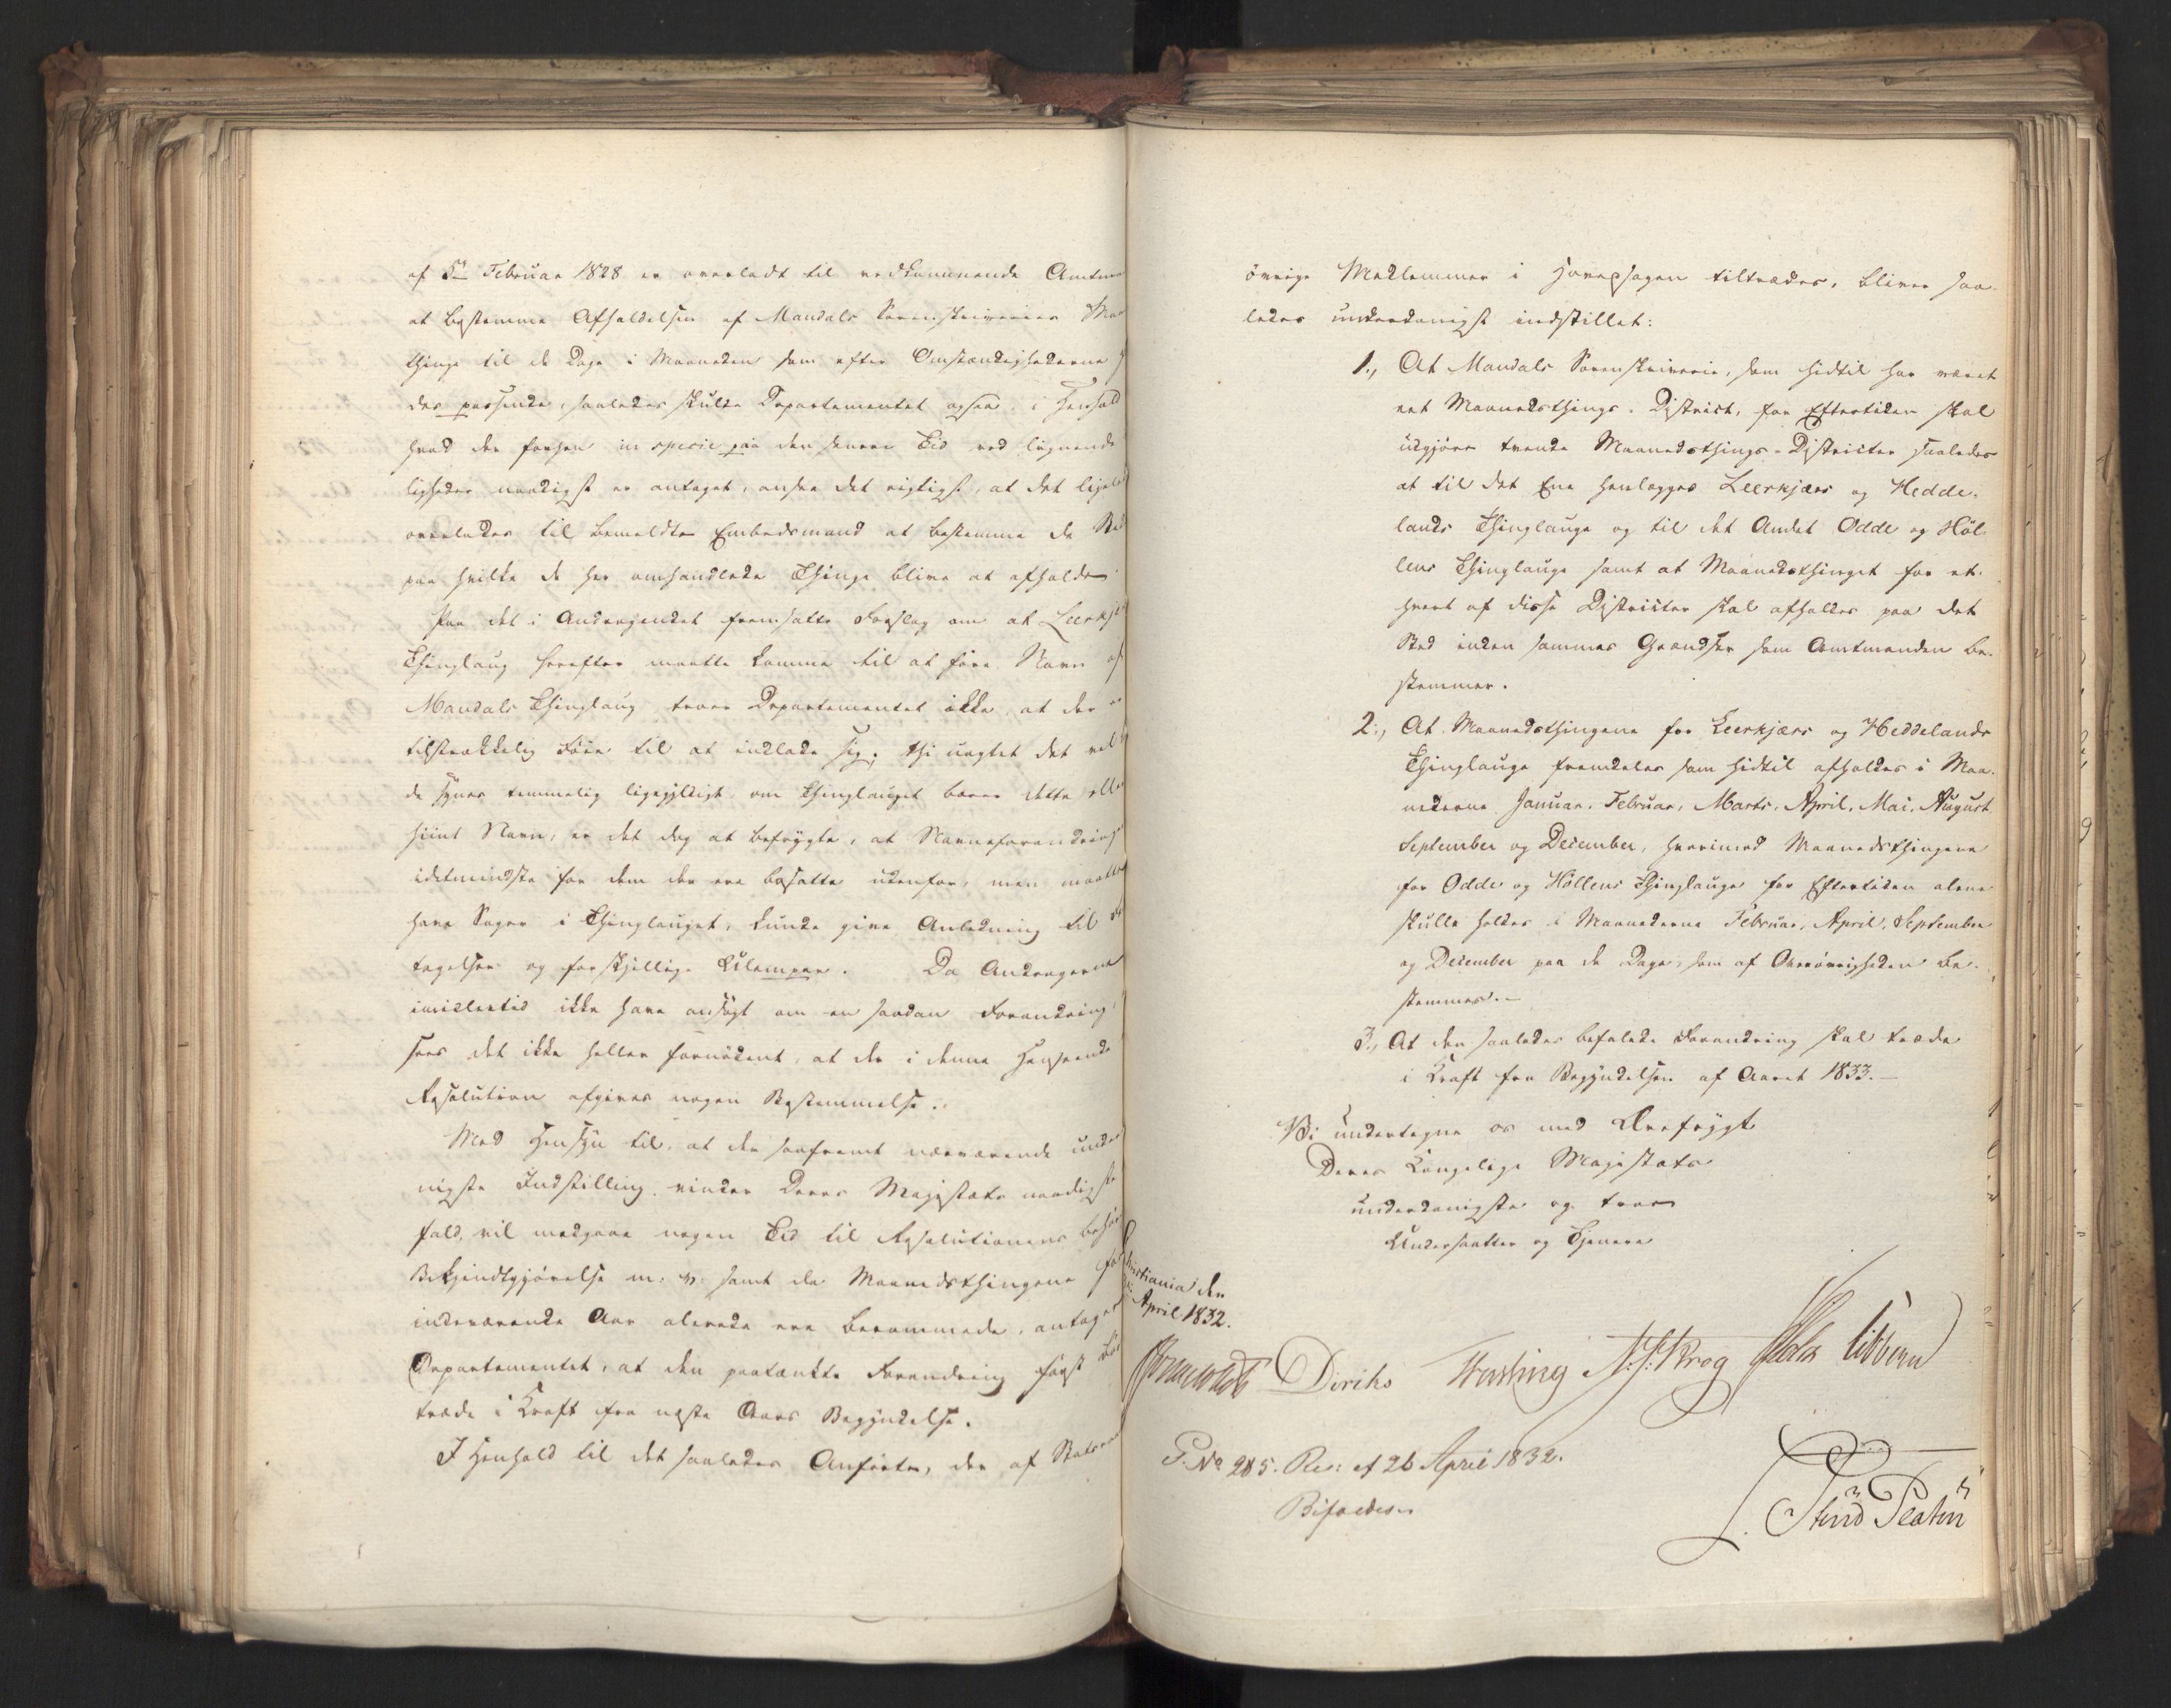 af 5te Februar 1828 er overladt til vedkommende Amtm
at bestemme Afholdelsen af Mandals Sorenskriveries Maa
thinge til de Dage i Maaneden som efter Omstændighederne
des passende, saaledes skulde Departementet ogsaa, i Henhold
hvad der forhen in specie paa den senere Tid ved lignende
ligheder naadigst er antaget, ansee det rigtigst, at det ligele
overlades til bemeldte Embedsmand at bestemme de Ste
paa hvilke de her omhandlede Thinge blive at afholde.
Paa det i Andragendet fremsatte Forslag om at Leerkjæ
Thinglaug herefter maatte komme til at føre Navn af
Mandals Thinglaug troer Departementet ikke, at der er
tilstrækkelig Føie til at indlade sig; thi uagtet det vel
de synes temmelig ligegyldigt om Thinglauget bærer dette eller
hiint Navn, er det dog at befrygte, at Navneforandring
idetmindste for dem der ere bosatte udenfor, men maatte
have Sager i Thinglauget, kunde give Anledning til
tagelser og forskjellige Ulemper. Da Andragerne
imidlertid ikke have ansøgt om en saadan Forandring,
sees det ikke heller fornødent, at der i denne Henseende
Resolution afgives nogen Bestemmelse.
Med Hensyn til, at der saafremt nærværende unde
nigste Indstilling vinder Deres Majestæts naadigste
fald, vil medgaae nogen Tid til Resolutionens behør
Bekjendtgjørelse m: v: samt da Maanedsthingene for
indeværende Aar allerede ere berammede, antager
Departementet, at den paatænkte Forandring først bør
træde i Kraft fra næste Aars Begyndelse.
I Henhold til det saaledes Anførte, der af Statsraa
øvrige Medlemmer i Hovedsagen tiltrædes, bliver saa-
ledes underdanigst indstillet:
1., At Mandals Sorenskriverie, som hidtil har været
eet Maanedsthings-District, for Eftertiden skal
udgjøre tvende Maanedsthings-Districter saaledes
at til det Ene henlægges Leerkjærs og Hedde-
lands Thinglauge og til det Andet Odde og Høl-
lens Thinglauge samt at Maanedsthinget for et-
hvert af disse Districter skal afholdes paa det
Sted inden sammes Grændser som Amtmanden be-
stemmer.
2., At Maanedsthingene for Leerkjærs og Heddelands
Thinglauge fremdeles som hidtil afholdes i Maa-
nederne Januar, Februar, Marts, April, Mai, August
September og December, hvorimod Maanedsthingene
for Odde og Høllens Thinglauge for Eftertiden alene
skulle holdes i Maanederne Februar, April, September
og December paa de Dage, som af Overøvrigheden be-
stemmes.—
3., At den saaledes befalede Forandring skal træde
i Kraft fra Begyndelsen af Aaret 1833.—
Vi undertegne os med Ærefrygt
Deres Kongelige Majestæts
underdanigste og troe
Undersaatter og Tjenere
Christiania den
April 1832.
Diriks Fasting N. J. Krog Holst Sibbern
P. No 285. Res: af 26 April 1832.
Bifaldes